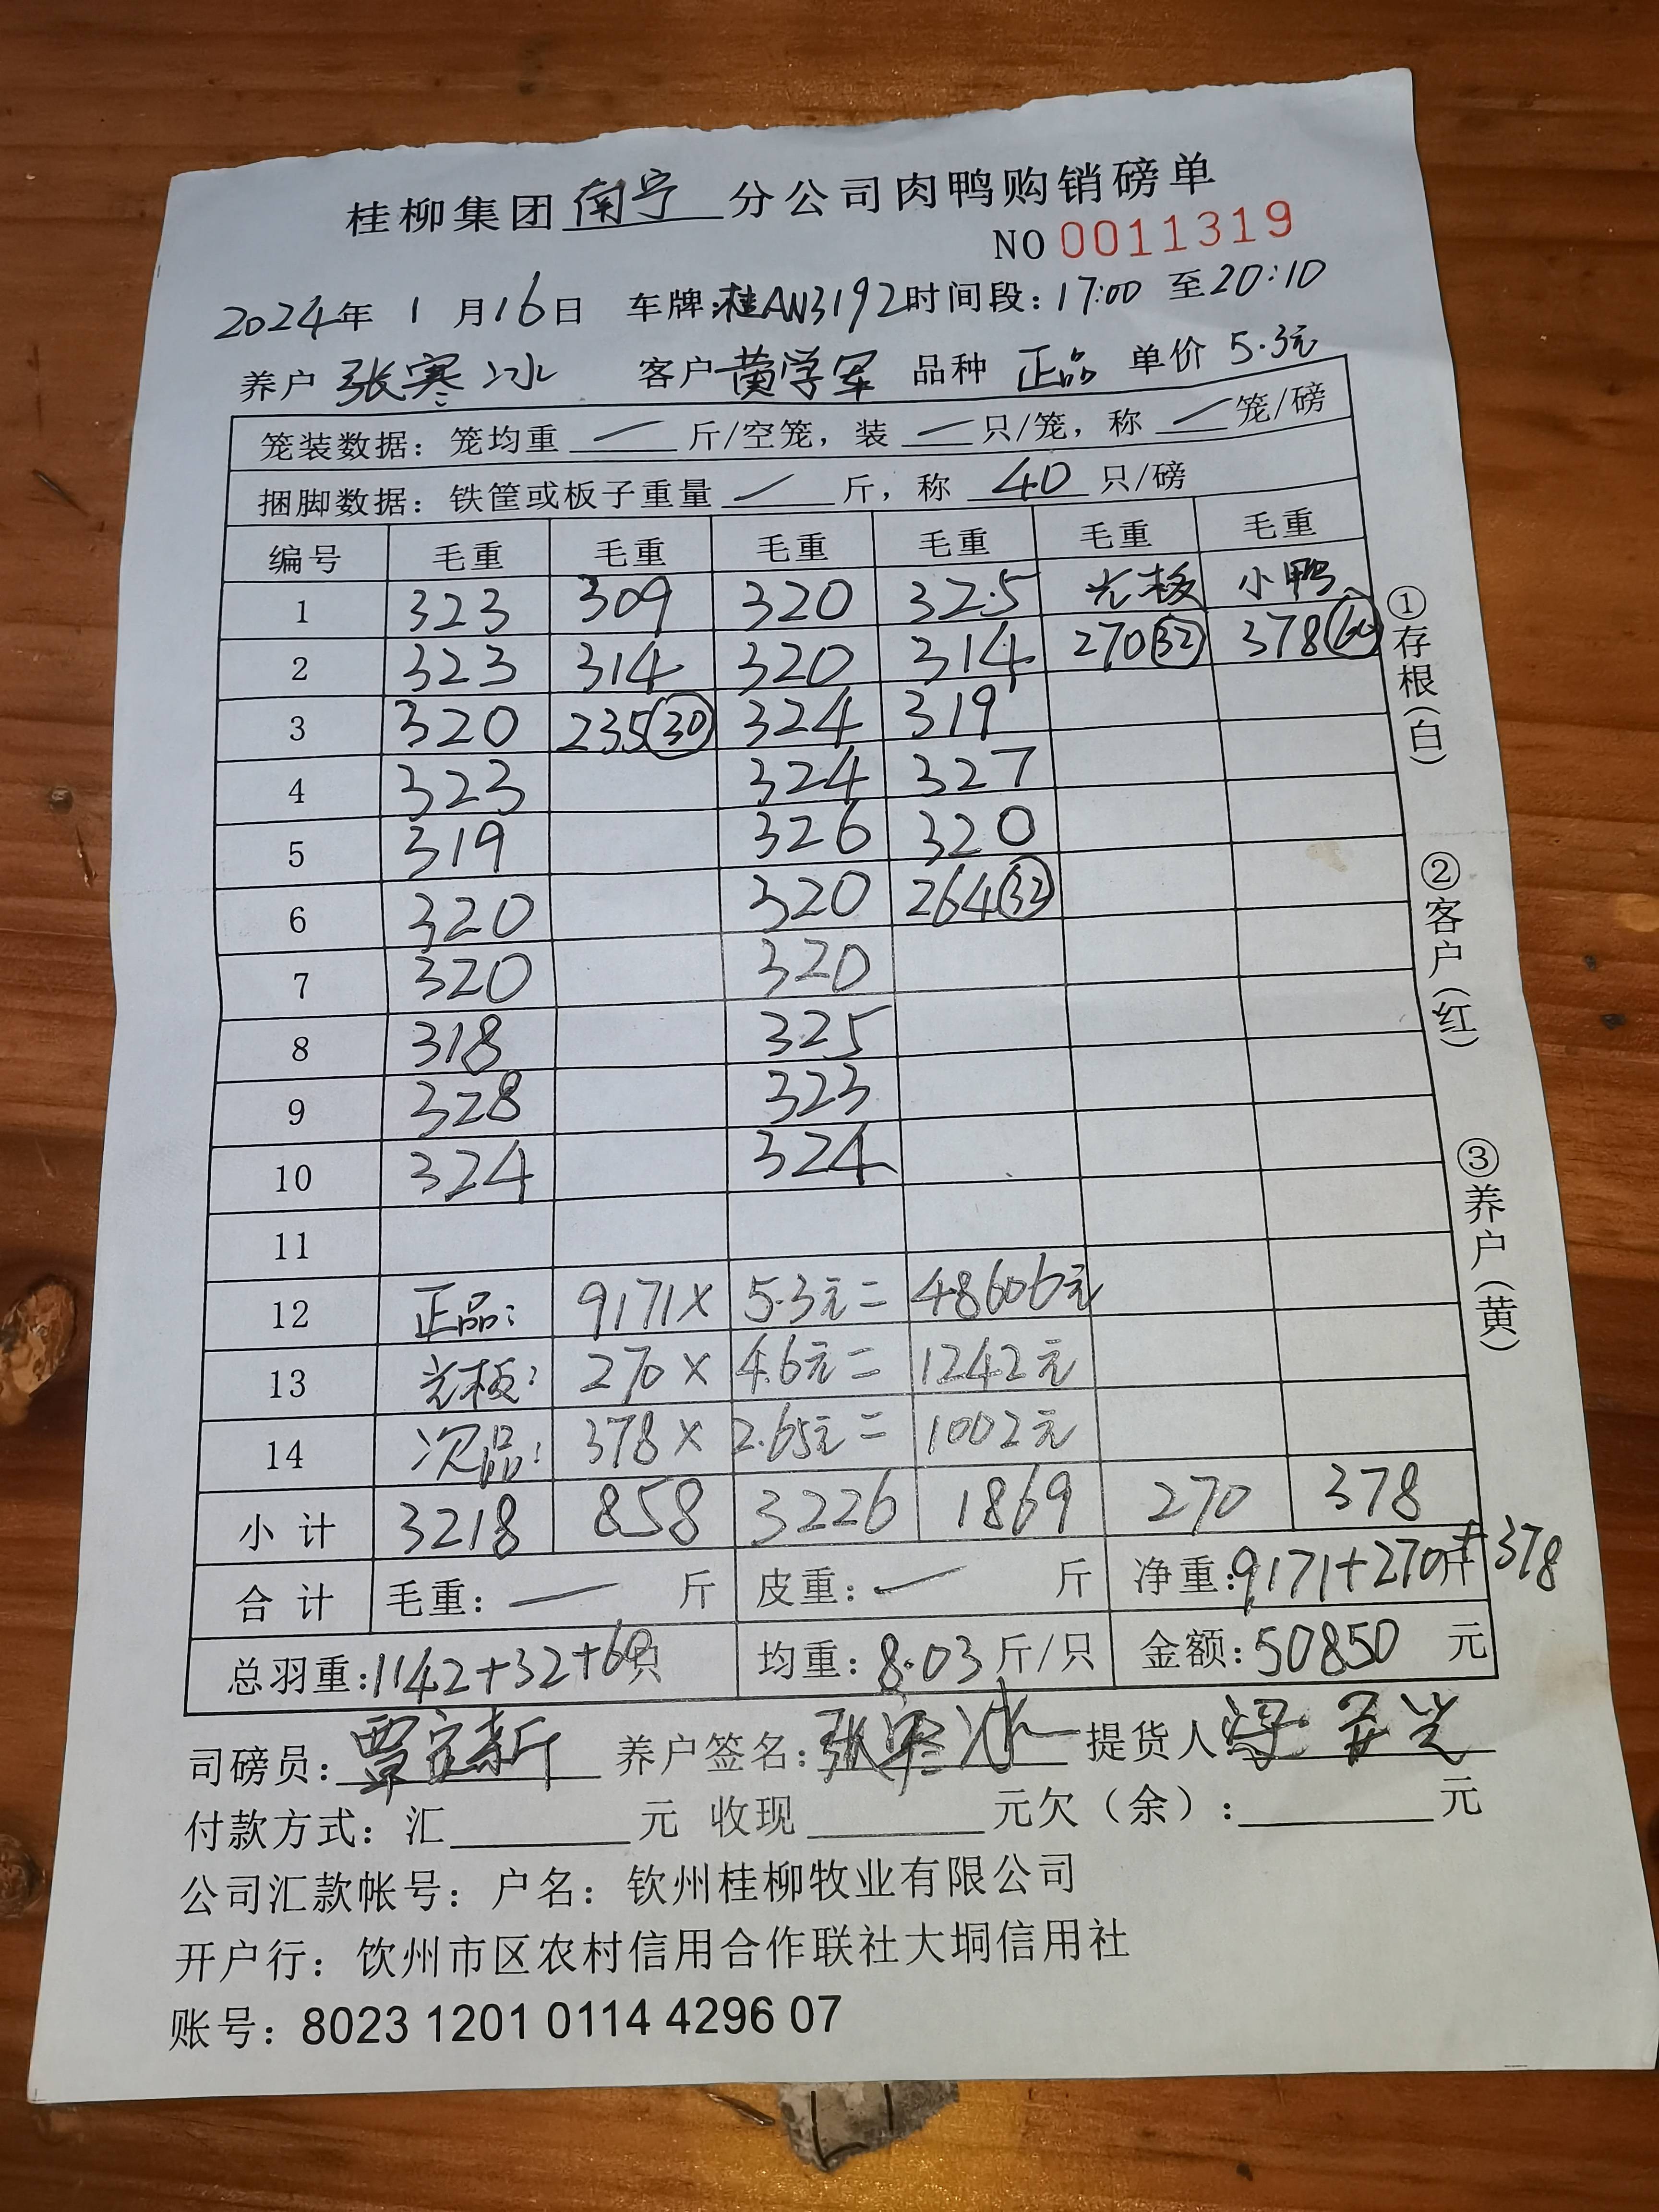 桂柳集团南宁分公司肉鸭购销磅单
NO 0011319
2024年 1 月16日 车牌:桂AN3192时间段:17:00 至20:10
养户 张寒冰 客户 黄学军 品种 正品 单价 5.3元
笼装数据:笼均重 — 斤/空笼,装 — 只/笼,称 — 笼/磅
捆脚数据:铁筐或板子重量 — 斤,称 40 只/磅
编号 毛重 毛重 毛重 毛重 毛重 毛重
1 323 309 320 325 光板 小鸭
2 323 314 320 314 270(32) 378(60)
3 320 235(30) 324 319
4 323 324 327
5 319 326 320
6 320 320 264(32)
7 320 320
8 318 325
9 328 323
10 324 324
11
12 正品: 9171× 5.3元= 48606元
13 光板: 270× 4.6元= 1242元
14 次品: 378× 2.65元= 1002元
小计 3218 858 3226 1869 270 378
合计 毛重: — 斤 皮重: — 斤 净重:9171+270斤+378
总羽重:1142+32+60只 均重:8.03斤/只 金额:50850 元
司磅员:覃定新 养户签名:张寒冰 提货人
付款方式:汇 元 收现 元欠(余): 元
公司汇款帐号:户名:钦州桂柳牧业有限公司
开户行:饮州市区农村信用合作联社大垌信用社
账号:8023 1201 0114 4296 07
①存根(白)
②客户(红)
③养户(黄)